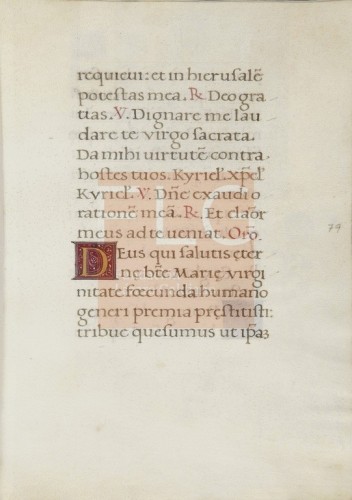 requieui: et in hierusalē
potestas mea. R̷ Deo gra
tias. V̷. Dignare me lau
dare te virgo sacrata.
Da mihi uirtutē contra
hostes tuos. Kyriel̕. xp̄el̕
Kyriel̕. V̷. Dn̄e exaudi o
rationē meā. R̷. Et claōr
meus ad te ueniat. Oro.
DEus qui salutis eter
ne btē Marie virgi
nitate fœcunda humano
generi premia prestitisti:
tribue quesumus ut ip̄aꝫ
79